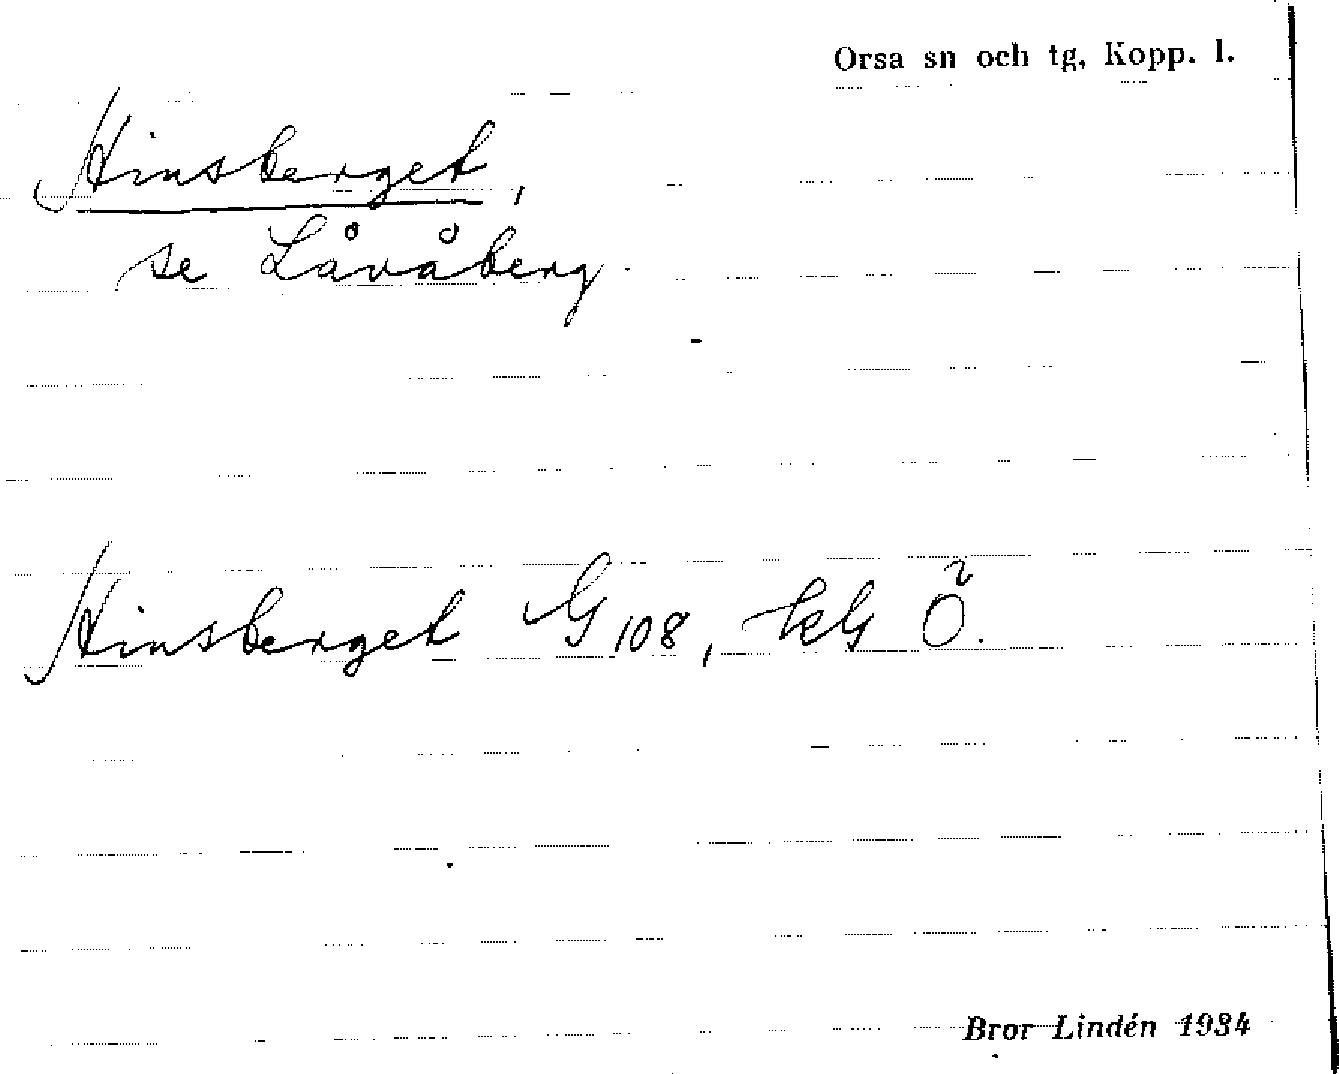 Orsa sn och tg, Kopp. l.
Hinsberget,
se Låvåberg
Hinsberget G 108, tkG Ö.
Bror Lindén 1934